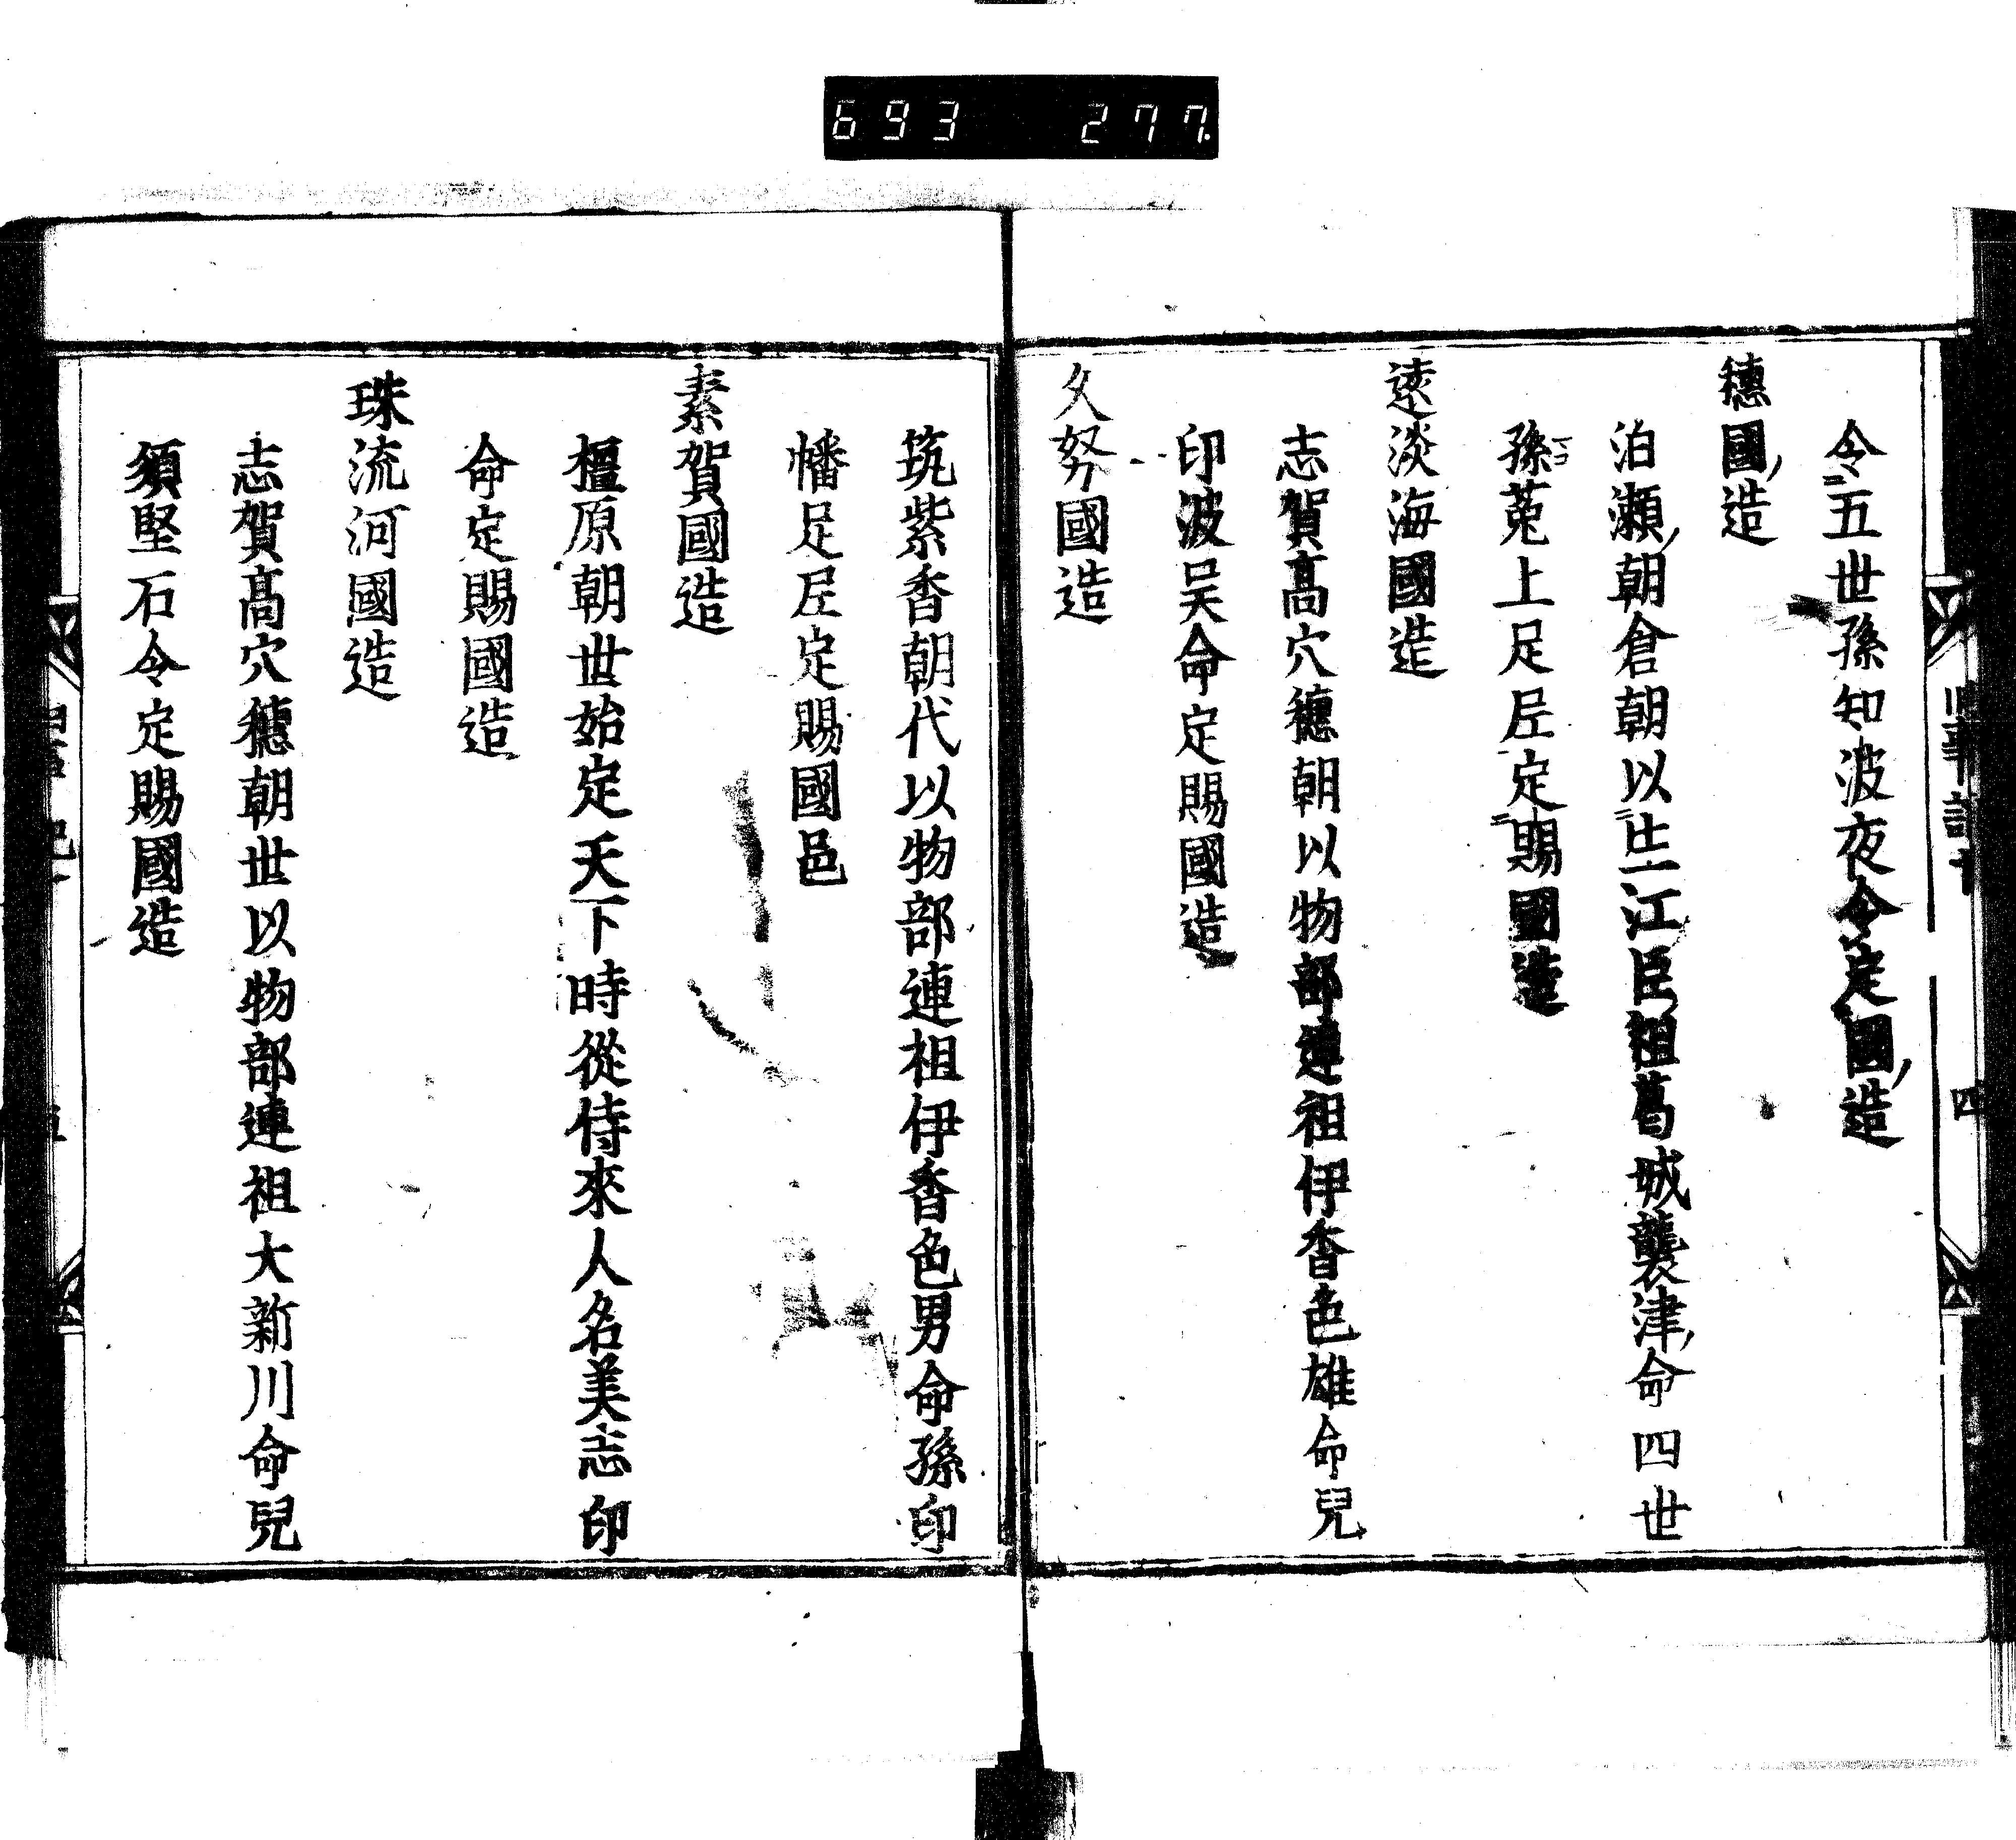 693 277
令五世孫知波夜令定國造
穗國造
泊瀬朝倉朝以生江臣祖葛城襲津命四世
孫菟上足尼定賜國造
遠淡海國造
志賀高穴穗朝以物部連祖伊香色雄命兒
印波足尼命定賜國造
久努國造
筑紫香朝代以物部連祖伊香色男命孫印
幡足尼定賜國邑
素賀國造
橿原朝世始定天下時從侍來人名美志印
命定賜國造
珠流河國造
志賀高穴穗朝世以物部連祖大新川命兒
須堅石令定賜國造
四